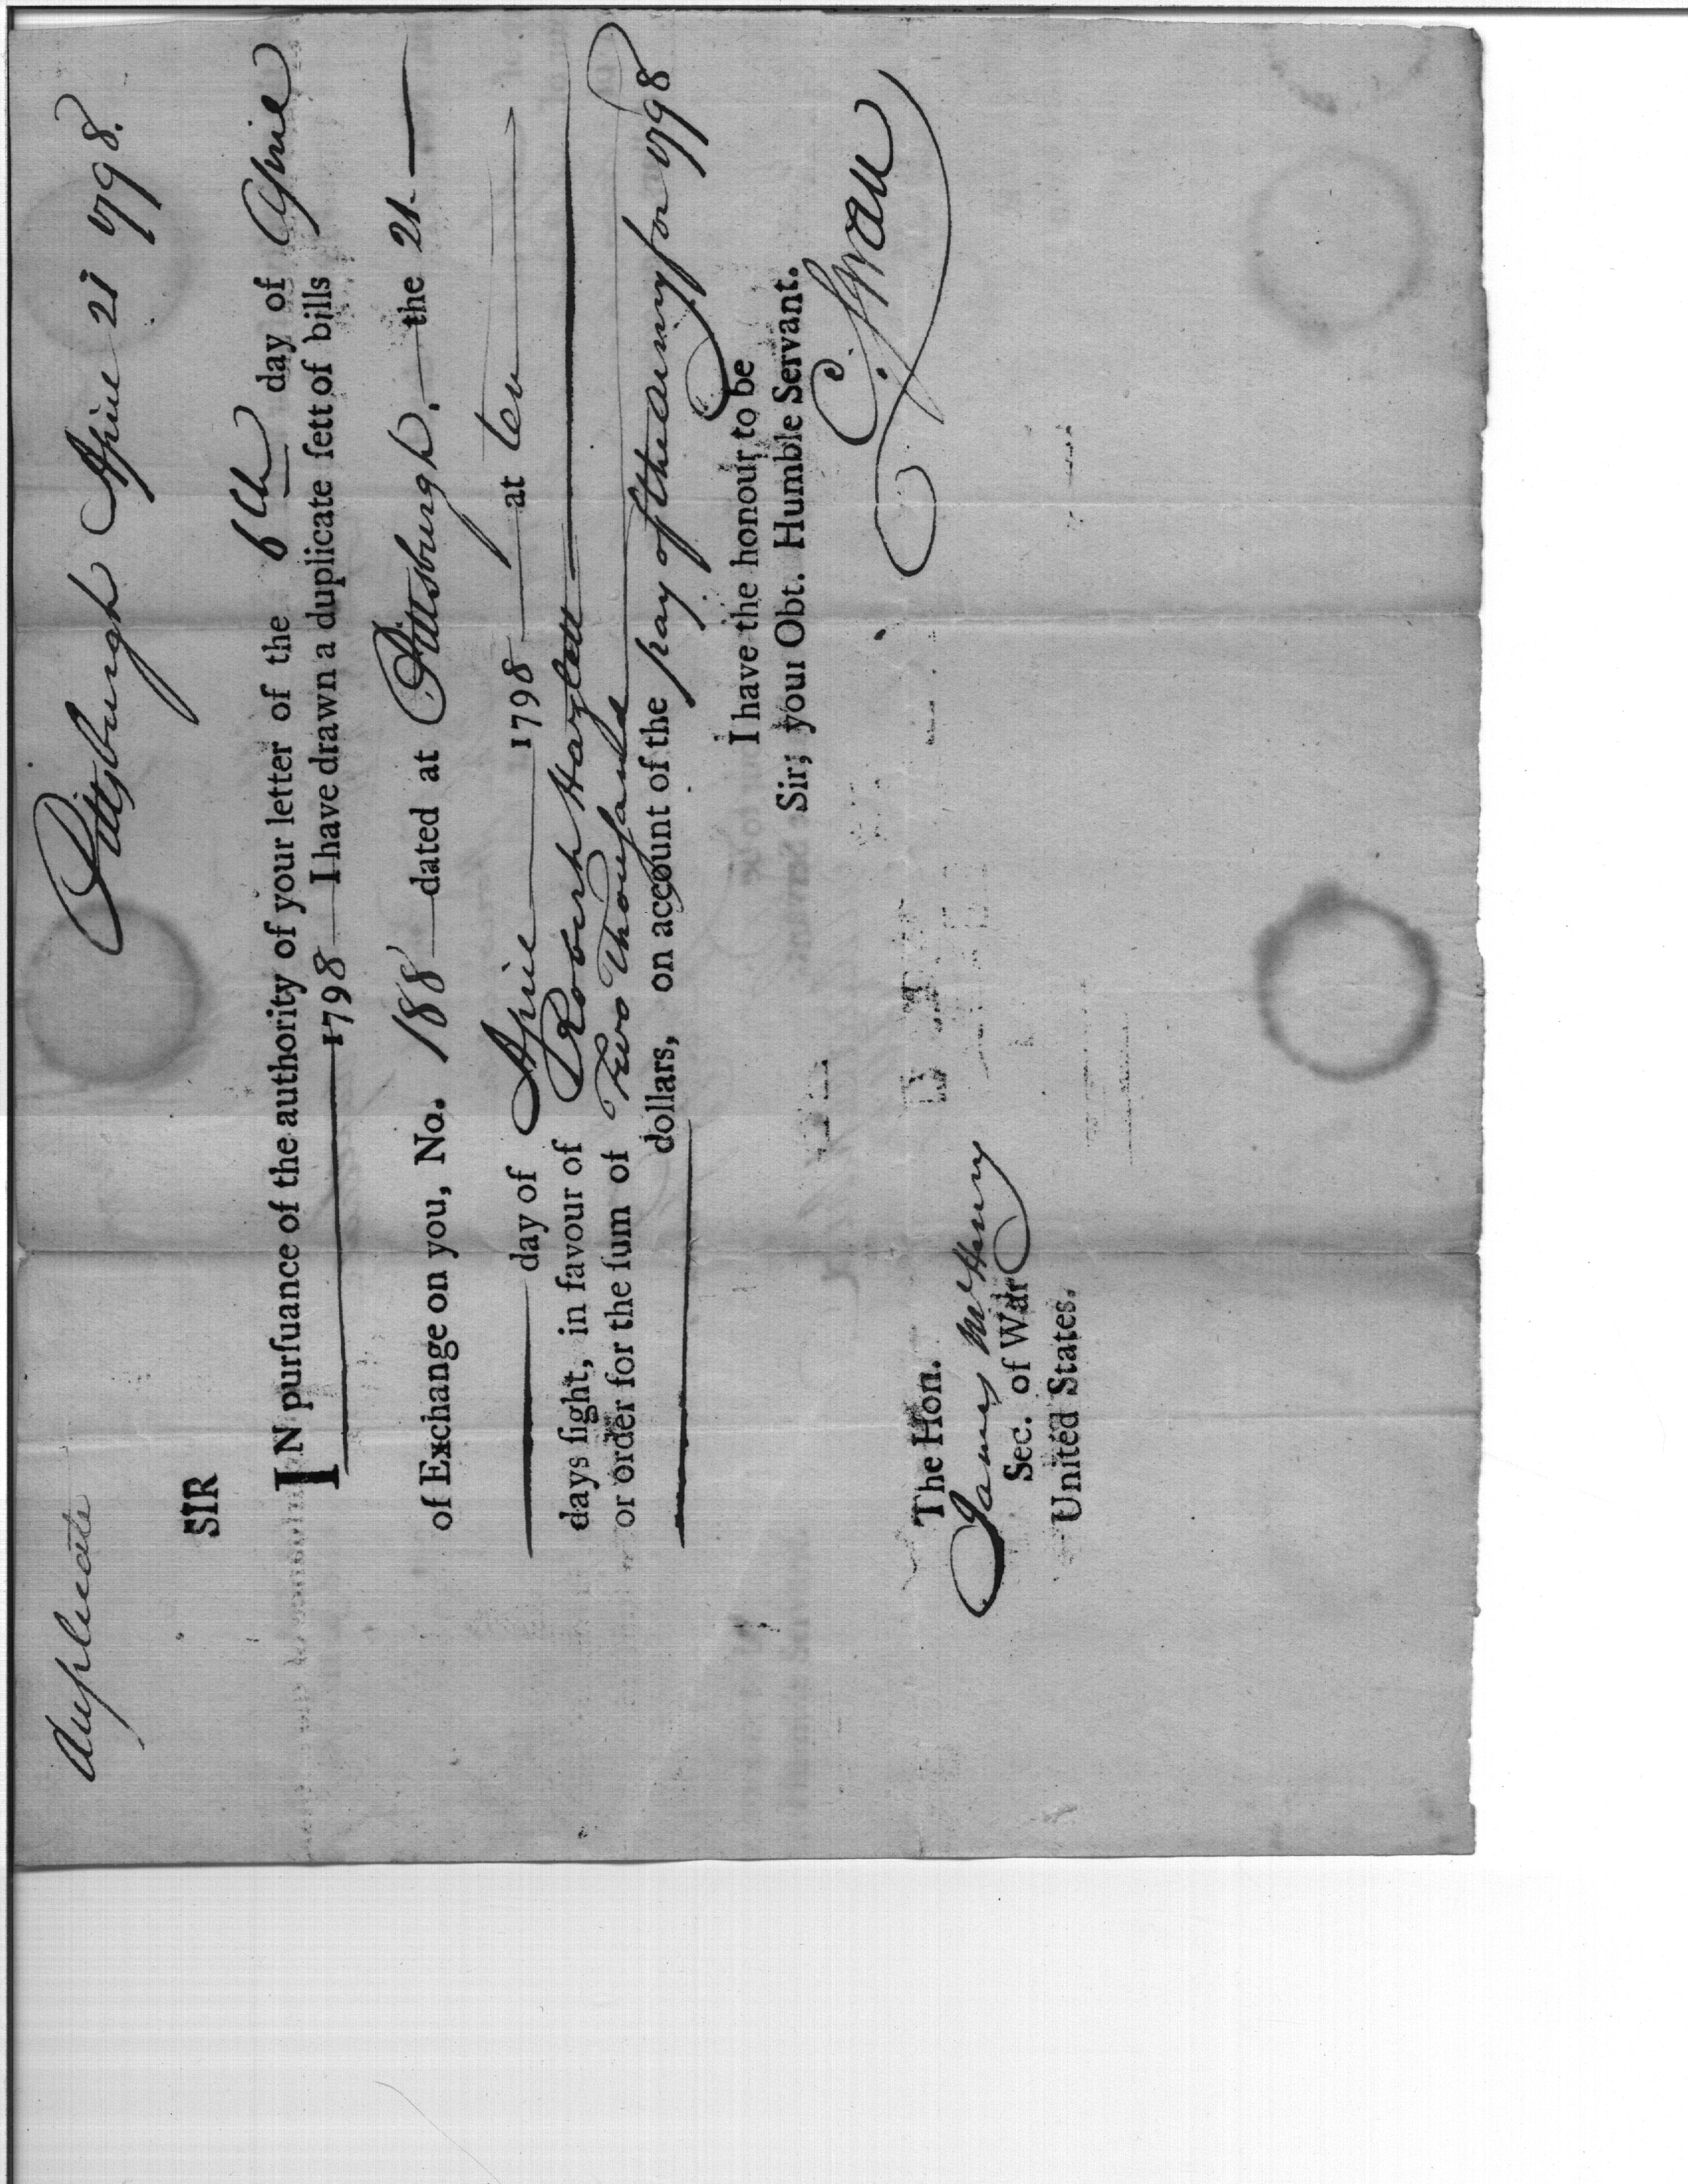 Duplicate
Pittsburgh April 21 1798.
SIR
IN purſuance of the authority of your letter of the 6th day of April
1798 I have drawn a duplicate ſett of bills
of Exchange on you, No. 188 dated at Pittsburgh, the 21
day of April 1798 at ten
days ſight, in favour of Robert Hazlett
or order for the ſum of Two Thouſand
dollars, on account of the pay of the army for 1798
I have the honour to be
Sir; your Obt. Humble Servant.
C. Swan
The Hon.
James McHenry
Sec. of War
United States.